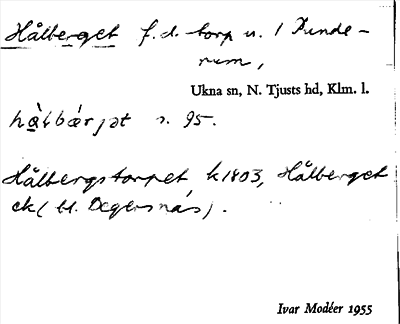 Hålberget f.d. torp u. 1 Runde-
rum,
Ukna sn, N. Tjusts hd, Klm. l.
s. 95.
Hålbergstorpet k 1803, Hålberget
ek (bl. Degersnäs).
Ivar Modéer 1955